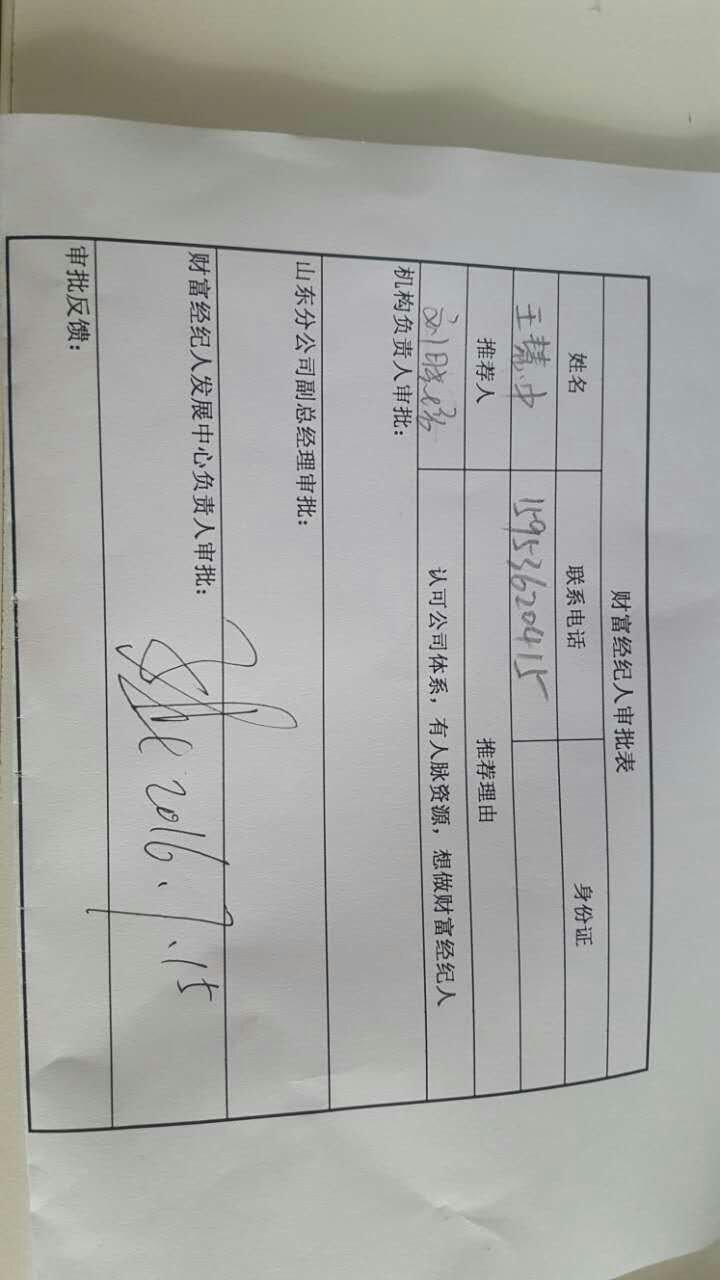 财富经纪人审批表
姓名 联系电话 身份证
王慧中 15953620415
推荐人 推荐理由
刘 认可公司体系，有人脉资源，想做财富经纪人
机构负责人审批：
山东分公司副总经理审批：
财富经纪人发展中心负责人审批：
2016.7.15
审批反馈：